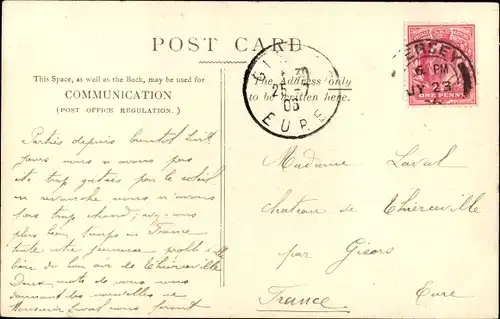 POST CARD
This Space, as well as the Back, may be used for
COMMUNICATION
(POST OFFICE REGULATION.)
The Address only
to be written here.
25-7
EURE
JERSEY
6 PM
JY 23
ONE PENNY
Parties depuis bientôt huit
jours nous n'avons pas
été trop gâtées par le soleil
en revanche nous n'avons
pas trop chaud; avez-vous
plus beau temps en France
toute votre jeunesse profite-t-elle
bien du bon air de Thierceville
Deux mots de vous nous
donnant des nouvelles de
Monsieur Laval nous feront
Madame Laval
Chateau de Thierceville
par Gisors
France Eure